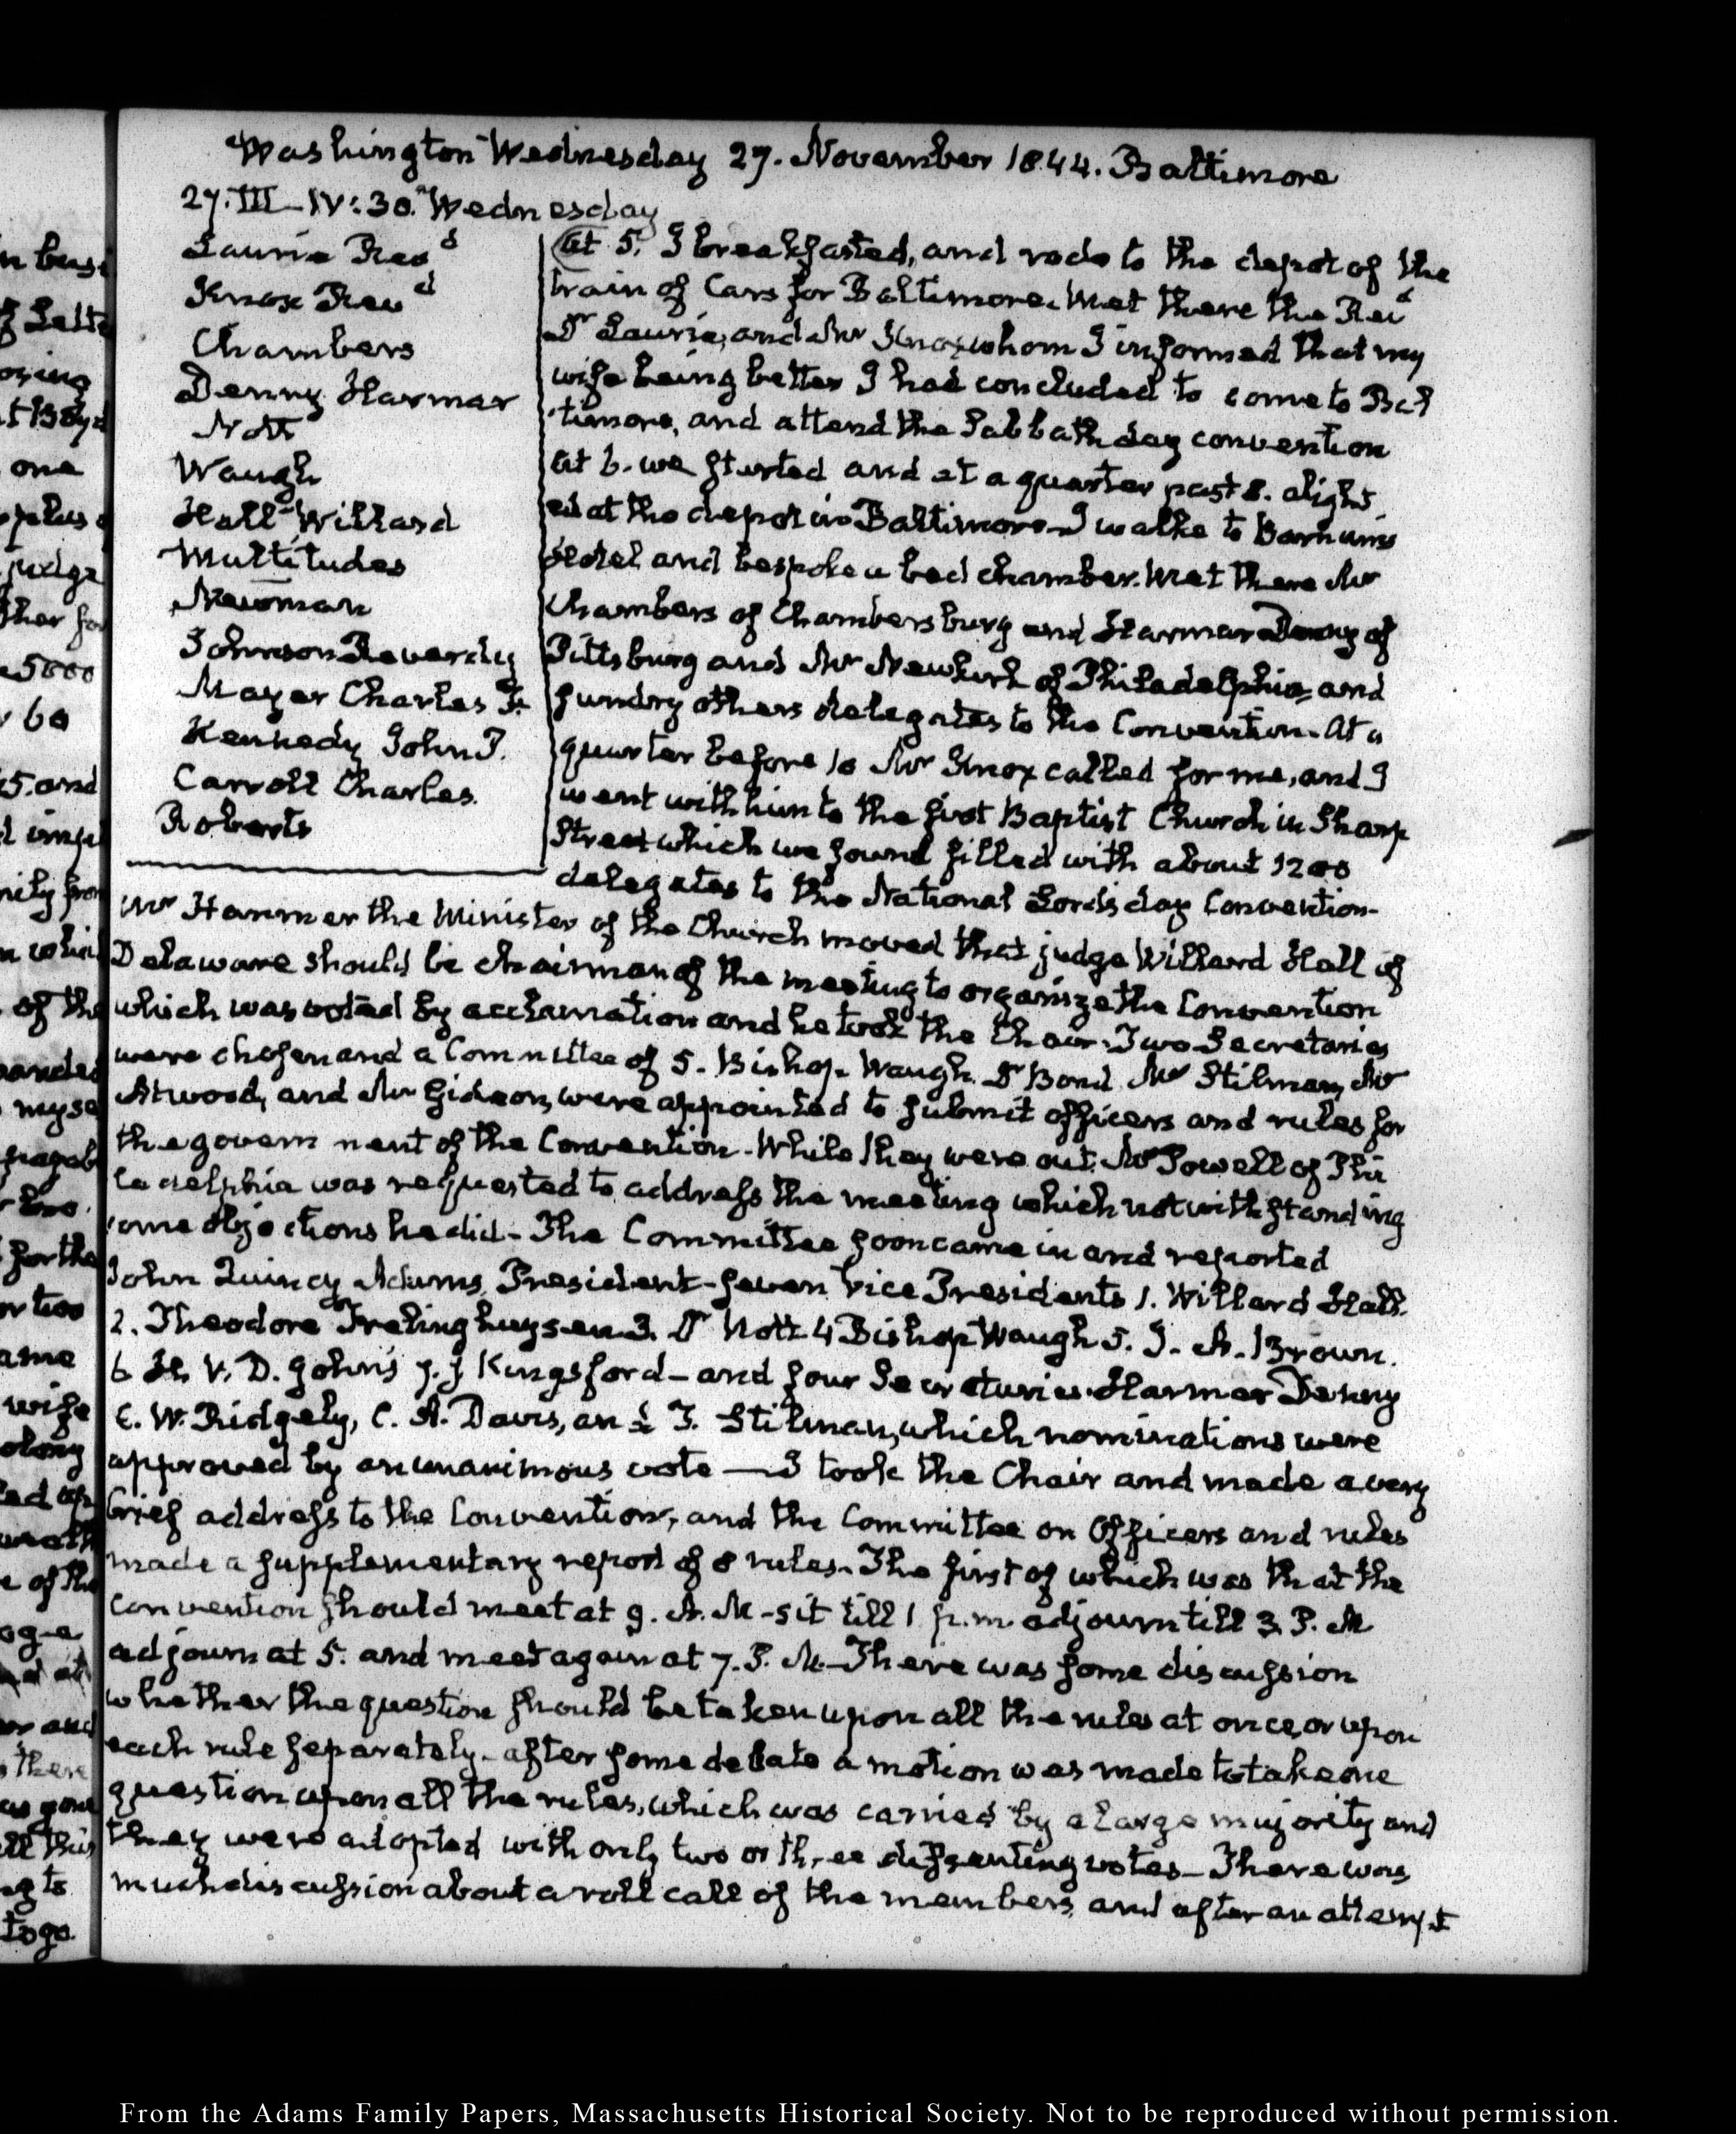 Washington Wednesday 27. November 1844. Baltimore
27. III–IV:30. Wednesday
Laurie Revd
Knox Revd
Chambers
Denny Harmar
Nott
Waugh
Hall Willard
Multitudes
Newman
Johnson Reverdy
Mayer Charles F.
Kennedy John P.
Carroll Charles.
Roberts
At 5. I breakfasted, and rode to the depot of the
train of Cars for Baltimore. Met there the Revd
Dr Laurie, and Mr Knox whom I informed that my
wife being better I had concluded to come to Bal
timore, and attend the Sabbath day convention
At 6. we started and at a quarter past 8. alight
ed at the depot in Baltimore. I walke to Barnums
Hotel and bespoke a bed chamber. Met there Mr
Chambers of Chambersburg and Harmar Denny of
Pittsburg and Mr Newkirk of Philadelphia, and
sundry others delegates to the Convention. At a
quarter before 10 Mr Knox called for me, and I
went with him to the first Baptist Church in Sharp
Street which we found filled with about 1200
delegates to the National Lord's day Convention–
Mr Hammer the Minister of the Church moved that judge Willard Hall of
Delaware should be chairman of the meeting to organize the Convention
which was voted by acclamation and he took the Chair. Two Secretaries
were chosen and a Committee of 5. Bishop Waugh. Dr Bond Mr Stilman, Mr
Atwood, and Mr Gideon, were appointed to submit officers and rules for
the government of the Convention. While they were out. Mr Powell of Phi
ladelphia was requested to address the meeting which notwithstanding
some objections he did– The Committee soon came in and reported
John Quincy Adams, President– seven Vice Presidents 1. Willard Hall.
2. Theodore Frelinghuysen 3. Dr Nott 4 Bishop Waugh 5. J. A. Brown.
6 H. V. D. Johns 7. J Kingsford– and four Secretaries. Harmer Denny
C. W. Ridgely, C. A. Davis, and T. Stilman, which nominations were
approved by an unanimous vote — I took the Chair and made a very
brief address to the Convention, and the Committee on Officers and rules
made a supplementary report of 8 rules. The first of which was that the
convention should meet at 9. A. M – sit till 1 p.m adjourn till 3. P. M
adjourn at 5. and meet again at 7. P. M– There was some discussion
whether the question should be taken upon all the rules at once, or upon
each rule separately– after some debate a motion was made to take one
question upon all the rules, which was carried by a large majority and
they were adopted with only two or three dissenting votes– There was
much discussion about a roll call of the members, and after an attempt
From the Adams Family Papers, Massachusetts Historical Society. Not to be reproduced without permission.